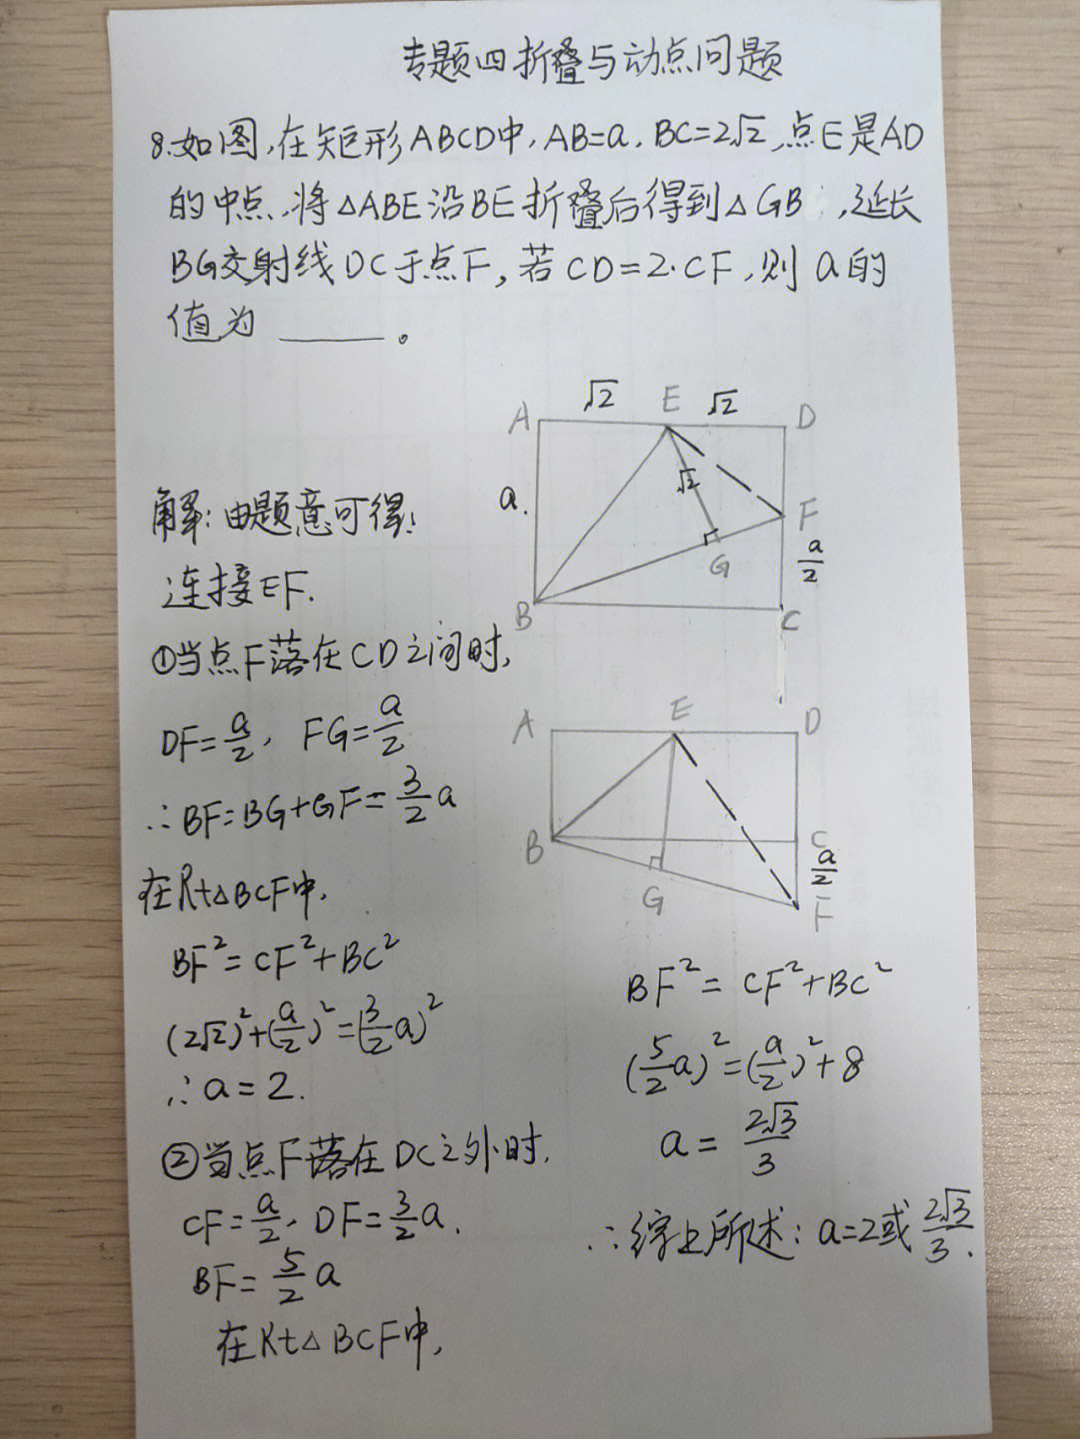 专题四折叠与动点问题
8.如图,在矩形ABCD中,AB=a,BC=2√2,点E是AD
的中点,将△ABE沿BE折叠后得到△GB ,延长
BG交射线DC于点F,若CD=2·CF,则a的
值为 ______ 。
A √2 E √2 D
a.
√2
F
G
a/2
B
C
解:由题意可得:
连接EF.
①当点F落在CD之间时,
DF=a/2, FG=a/2
∴BF=BG+GF=3/2a
在Rt△BCF中,
BF²=CF²+BC²
(2√2)²+(a/2)²=(3/2a)²
∴a=2.
②当点F落在DC之外时,
CF=a/2, DF=3/2a.
BF=5/2a
在Rt△BCF中,
A E D
B
C
a/2
G
F
BF²=CF²+BC²
(5/2a)²=(a/2)²+8
a=2√3/3
∴综上所述:a=2或2√3/3.